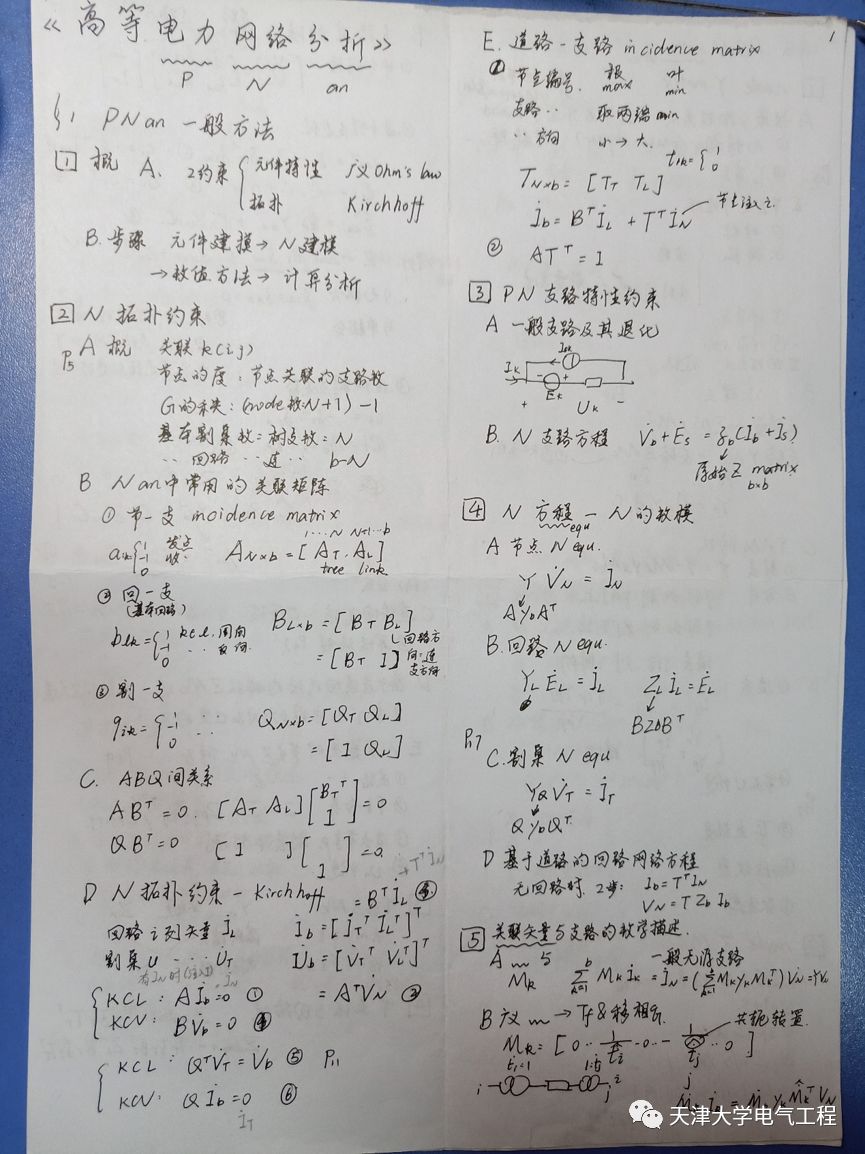 《高等电力网络分析》
P N an
§1 PNan 一般方法
1 概 A. 2约束 { 元件特性 广义Ohm's law
拓扑 Kirchhoff
B. 步骤 元件建模→N建模
→数值方法→计算分析
2 N 拓扑约束
P5 A 概 关联 k(i,j)
节点的度:节点关联的支路数
G的秩:(node数:N+1)-1
基本割集数=树支数:N
‥ 回路 ‥ 连 ‥ b-N
B Nan中常用的关联矩阵
① 节-支 incidence matrix
1…N N+1…b
aik={1 -1 0 发点 收‥ A N×b=[AT, AL]
tree link
② 回-支
(基本回路)
blk={1 -1 0 k∈l, 同向 反向 B L×b=[BT BL]
=[BT I] 回路方向:连支方向
③ 割-支
qik={1 -1 0 ‥ Q N×b=[QT QL]
=[I QL]
C. ABQ间关系
ABᵀ=0. [AT AL][BTᵀ I]=0
QBᵀ=0 [I ][ I]=0
+TᵀİN
D N 拓扑约束-Kirchhoff =BᵀİL ③
回路电流列矢量 İL İb=[İTᵀ İLᵀ]ᵀ
割集U ‥ U̇T U̇b=[V̇Tᵀ V̇Lᵀ]ᵀ
{ KCL: Aİb=0 ① =AᵀV̇N ②
KCV: BV̇b=0 ④
{ KCL: QᵀV̇T=V̇b ⑤ P11
KCV: Qİb=0 ⑥
İT
1
E. 道路-支路 incidence matrix
① 节点编号. 根max 叶min
支路‥ 取两端min
‥方向 小→大.
tik={1 0
T N×b=[TT TL]
İb=BᵀİL+TᵀİN 节点注入
② ATᵀ=I
3 PN支路特性约束
A 一般支路及其退化
Isk
Ik - + Ek
+ Uk -
B. N 支路方程 V̇b+Ės=zb(İb+İs)
原始Z matrix
b×b
4 N 方程-N的数模
equ
A 节点 N equ.
Y V̇N=İN
AYbAᵀ
B. 回路 N equ.
YL ĖL=İL ZL İL=ĖL
BZbBᵀ
P17
C. 割集 N equ
YQ V̇T=İT
QYbQᵀ
D 基于道路的回路网络方程
无回路时. 2步: Ib=TᵀIN
VN=T Zb Ib
5 关联矢量与支路的数学描述.
A m 与 一般无源支路
Mk Σ Mk İk=İN=(Σ Mk yk Mkᵀ)VN=YVN
B 广义m→Tf&移相器. 共轭转置.
Mk=[0‥
‥0‥-
‥0]
i j
天津大学电气工程